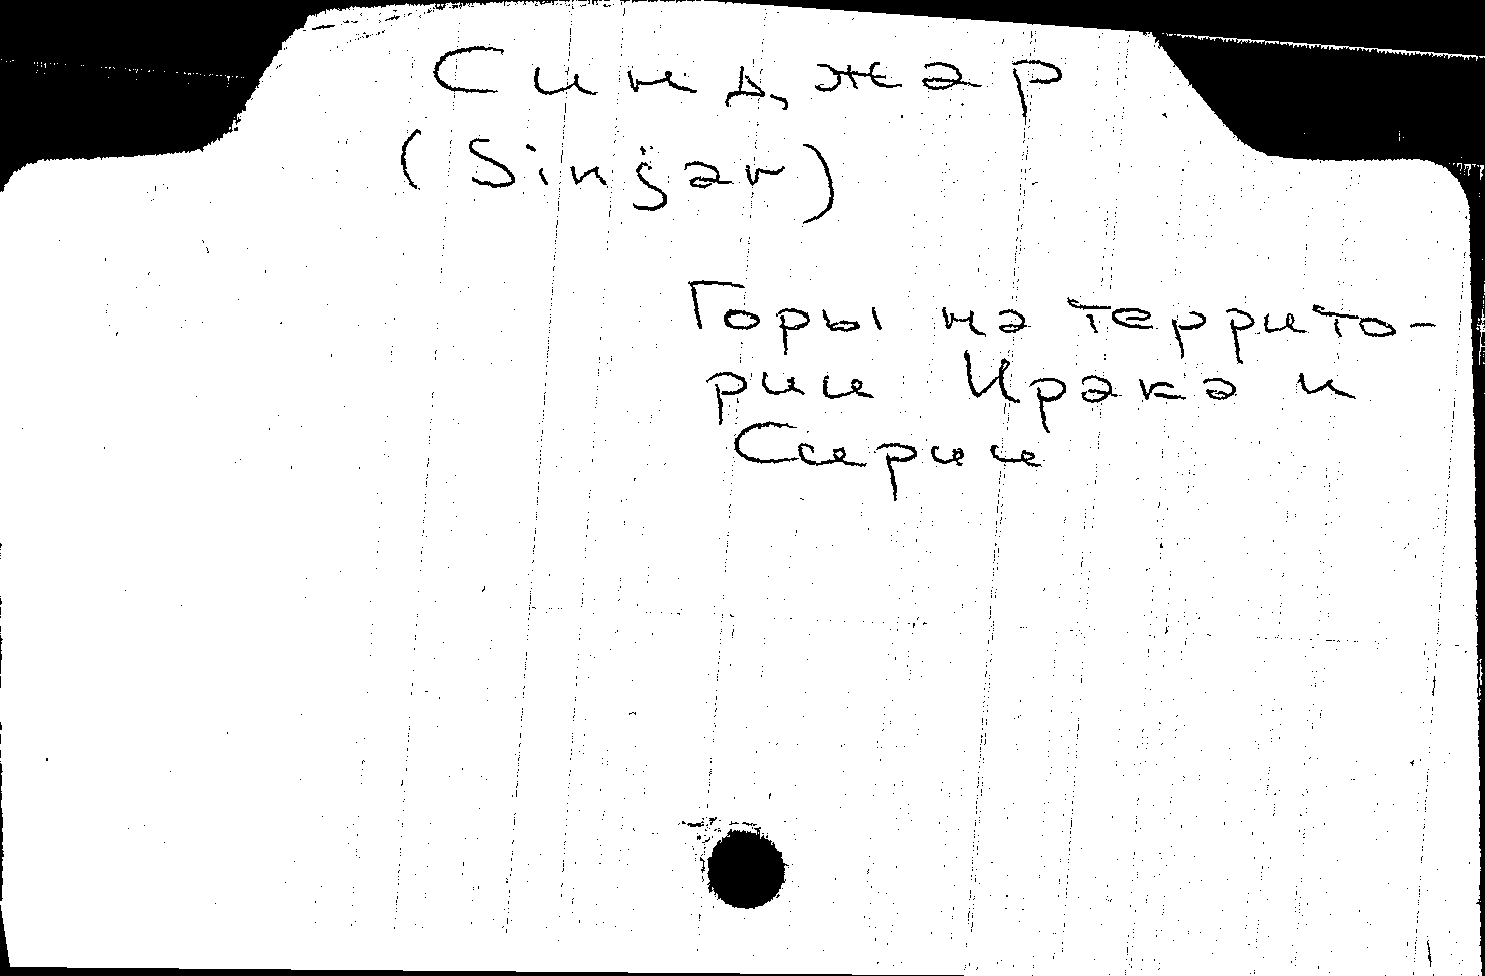 Синджар
(Sinǧar)
Горы на террито-
рии Ирака и
Сирии